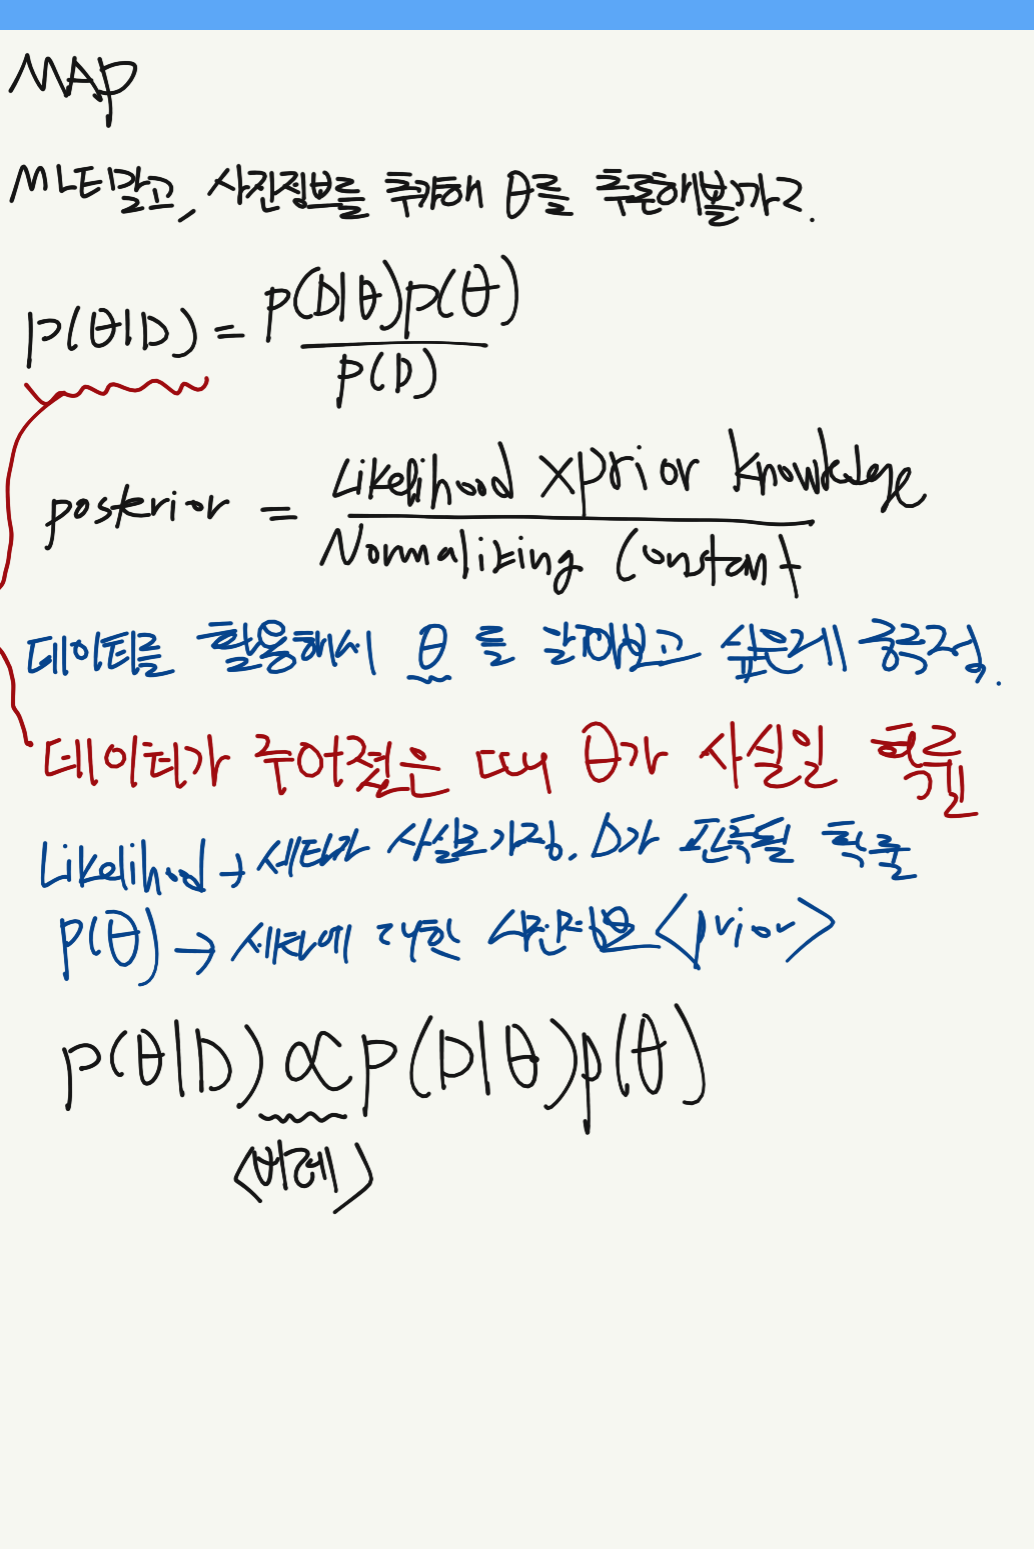 MAP
사전정보를 추가해 θ를 추론해볼가?.
P(θ|D) = P(D|θ)P(θ) / P(D)
posterior = Likelihood X prior knowledge / Normalizing Constant
데이터를 활용해서 θ 를 알아보고 싶은게 궁극적.
데이터가 주어졌을 때 θ가 사실일 확률
Likelihood → 세타가 사실로 가정. D가 관측될 확률
P(θ) → 세타에 대한 사전 <prior>
P(θ|D) ∝ P(D|θ)P(θ)
<비례>